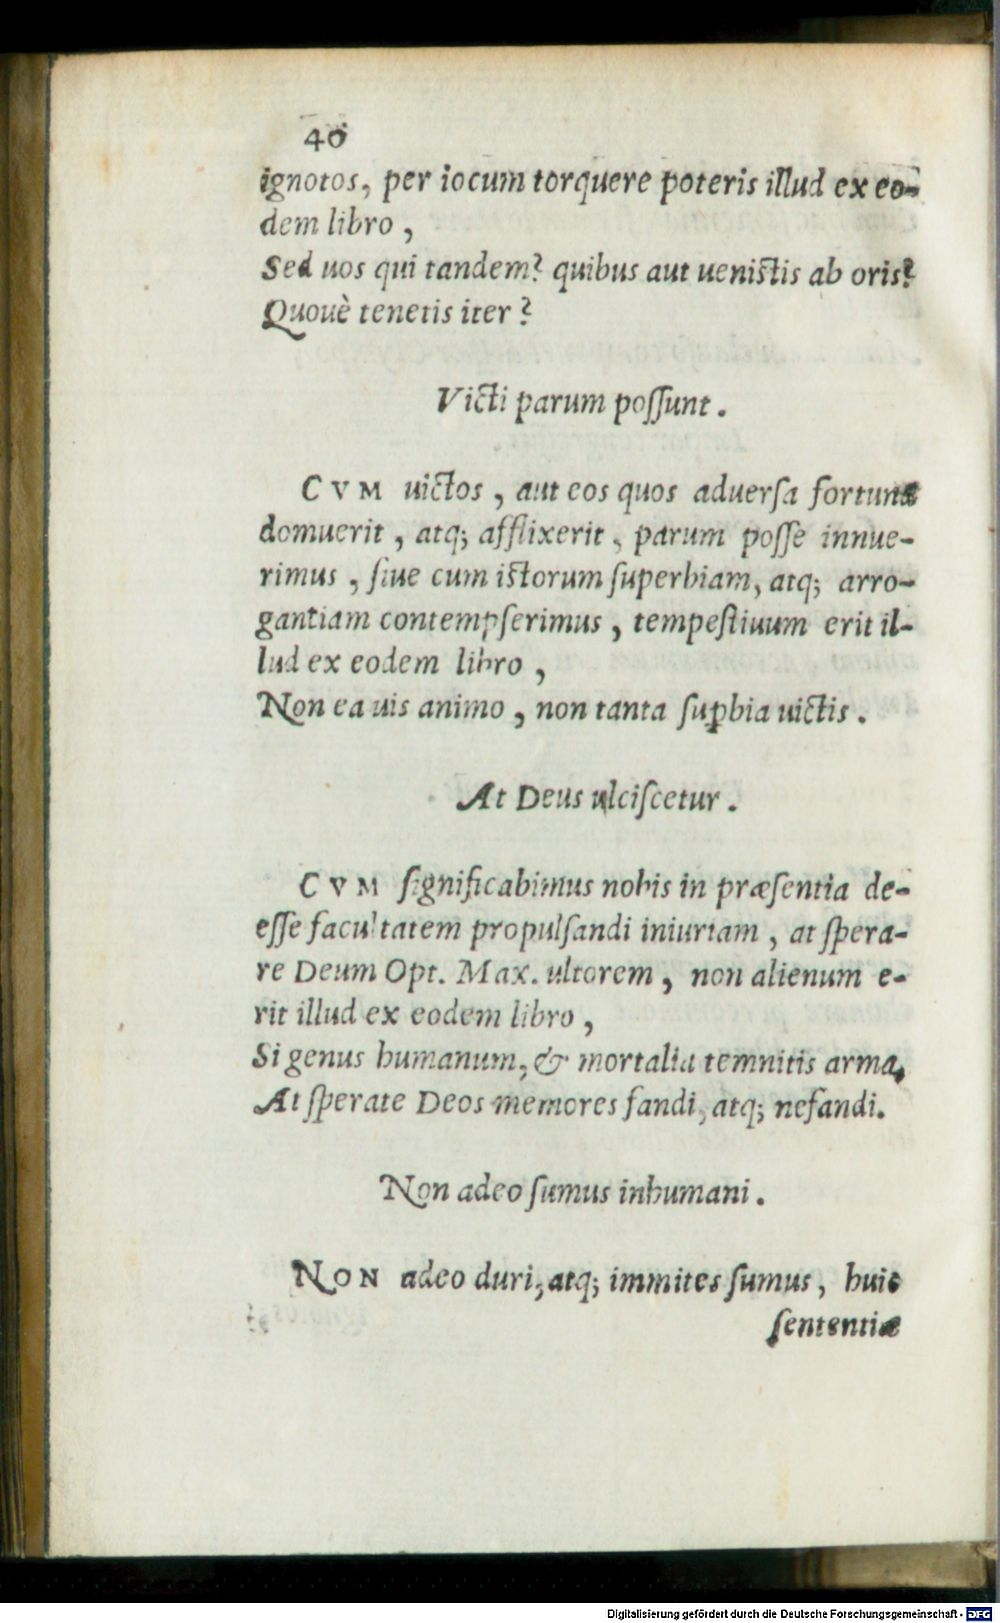 40
ignotos, per iocum torquere poteris illud ex eo-
dem libro,
Sed uos qui tandem? quibus aut uenistis ab oris?
Quouè tenetis iter?
Victi parum possunt.
CVM uictos, aut eos quos aduersa fortuna
domuerit, atq; afflixerit, parum posse innue-
rimus, siue cum istorum superbiam, atq; arro-
gantiam contempserimus, tempestiuum erit il-
lud ex eodem libro,
Non ea uis animo, non tanta suꝑbia uictis.
At Deus ulciscetur.
CVM significabimus nobis in præsentia de-
esse facultatem propulsandi iniuriam, at spera-
re Deum Opt. Max. ultorem, non alienum e-
rit illud ex eodem libro,
Si genus humanum, & mortalia temnitis arma,
At sperate Deos memores fandi, atq; nefandi.
Non adeo sumus inhumani.
NON adeo duri, atq; immites sumus, huic
sententiæ
Digitalisierung gefördert durch die Deutsche Forschungsgemeinschaft - DFG